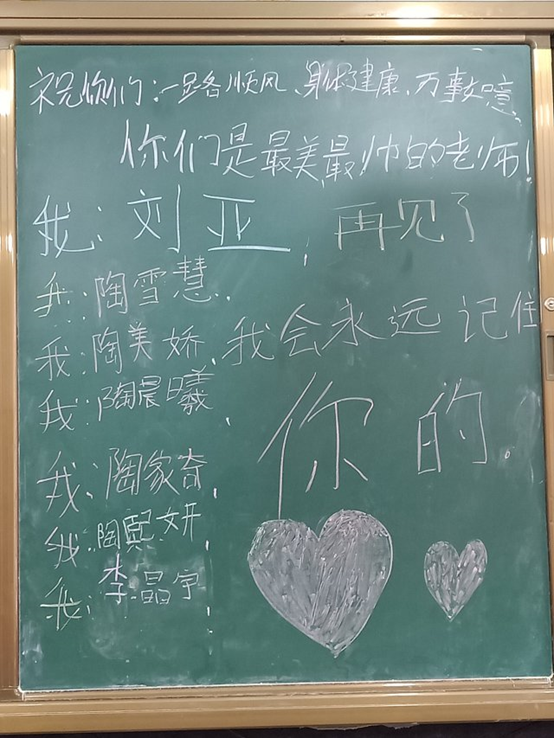 祝你们：一路顺风、身体健康、万事如意
你们是最美最帅的老师！
我：刘亚，再见了
我：陶雪慧，
我：陶美娇，我会永远记住
我：陶晨曦，
你的。
我：陶家奇，
我：陶熙妍，
我：李晶宇，